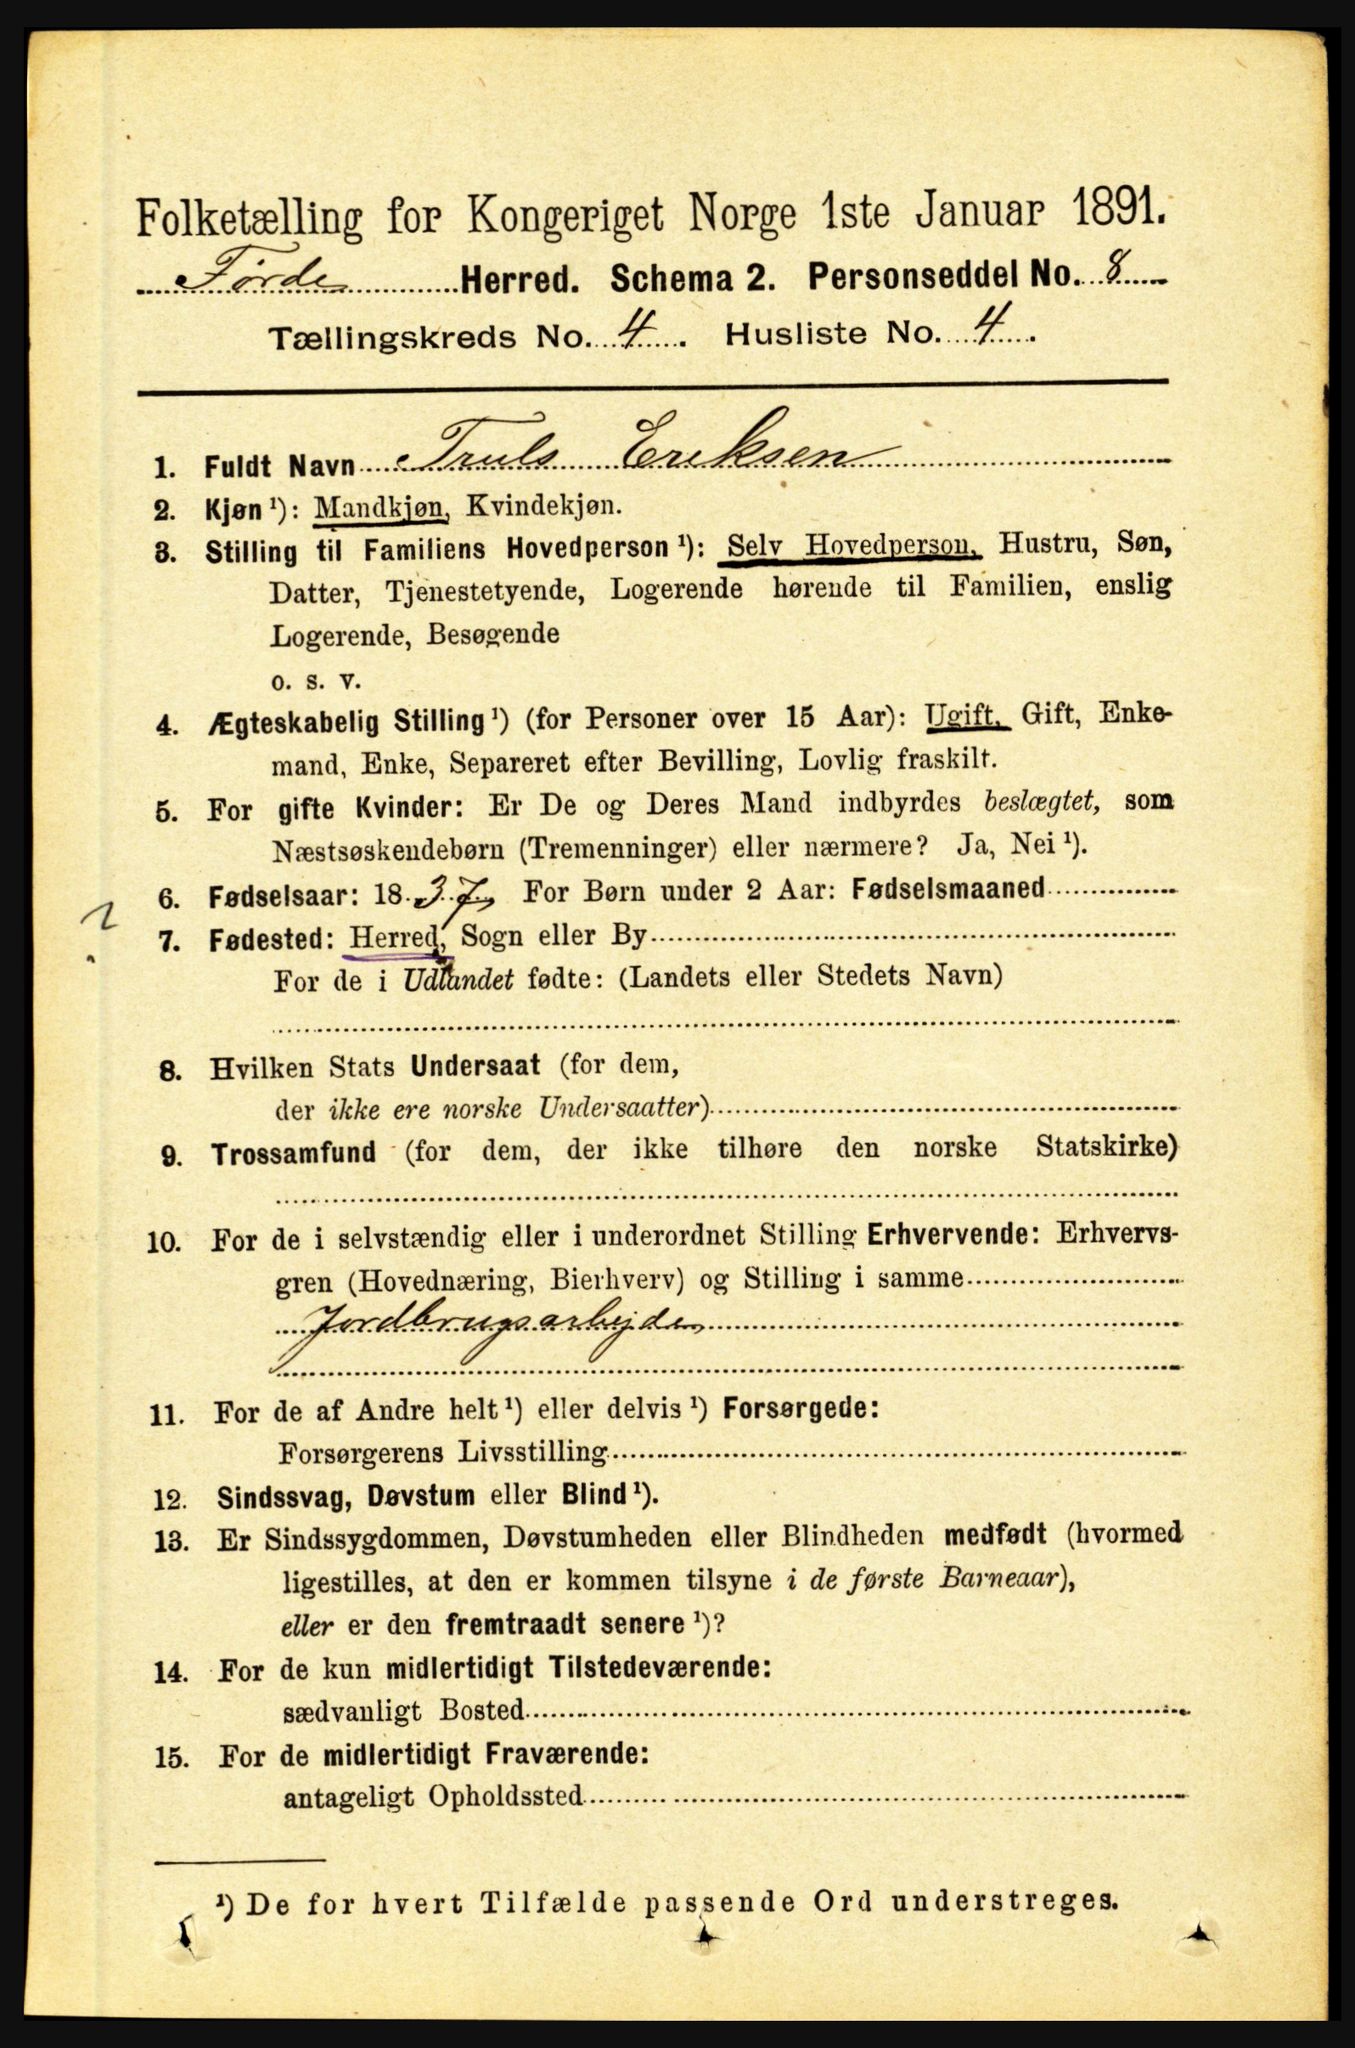 Folketælling for Kongeriget Norge 1ste Januar 1891.
Førde Herred. Schema 2. Personseddel No. 8
Tællingskreds No. 4. Husliste No. 4.
1. Fuldt Navn Truls Eriksen
2. Kjøn¹): Mandkjøn, Kvindekjøn.
3. Stilling til Familiens Hovedperson¹): Selv Hovedperson, Hustru, Søn,
Datter, Tjenestetyende, Logerende hørende til Familien, enslig
Logerende, Besøgende
o. s. v.
4. Ægteskabelig Stilling¹) (for Personer over 15 Aar): Ugift, Gift, Enke-
mand, Enke, Separeret efter Bevilling, Lovlig fraskilt.
5. For gifte Kvinder: Er De og Deres Mand indbyrdes beslægtet, som
Næstsøskendebørn (Tremenninger) eller nærmere? Ja, Nei¹).
6. Fødselsaar: 1837, For Børn under 2 Aar: Fødselsmaaned
?
7. Fødested: Herred, Sogn eller By
For de i Udlandet fødte: (Landets eller Stedets Navn)
8. Hvilken Stats Undersaat (for dem,
der ikke ere norske Undersaatter)
9. Trossamfund (for dem, der ikke tilhøre den norske Statskirke)
10. For de i selvstændig eller i underordnet Stilling Erhvervende: Erhvervs-
gren (Hovednæring, Bierhverv) og Stilling i samme
Jordbrugsarbejder
11. For de af Andre helt¹) eller delvis¹) Forsørgede:
Forsørgerens Livsstilling
12. Sindssvag, Døvstum eller Blind¹).
13. Er Sindssygdommen, Døvstumheden eller Blindheden medfødt (hvormed
ligestilles, at den er kommen tilsyne i de første Barneaar),
eller er den fremtraadt senere¹)?
14. For de kun midlertidigt Tilstedeværende:
sædvanligt Bosted
15. For de midlertidigt Fraværende:
antageligt Opholdssted
¹) De for hvert Tilfælde passende Ord understreges.